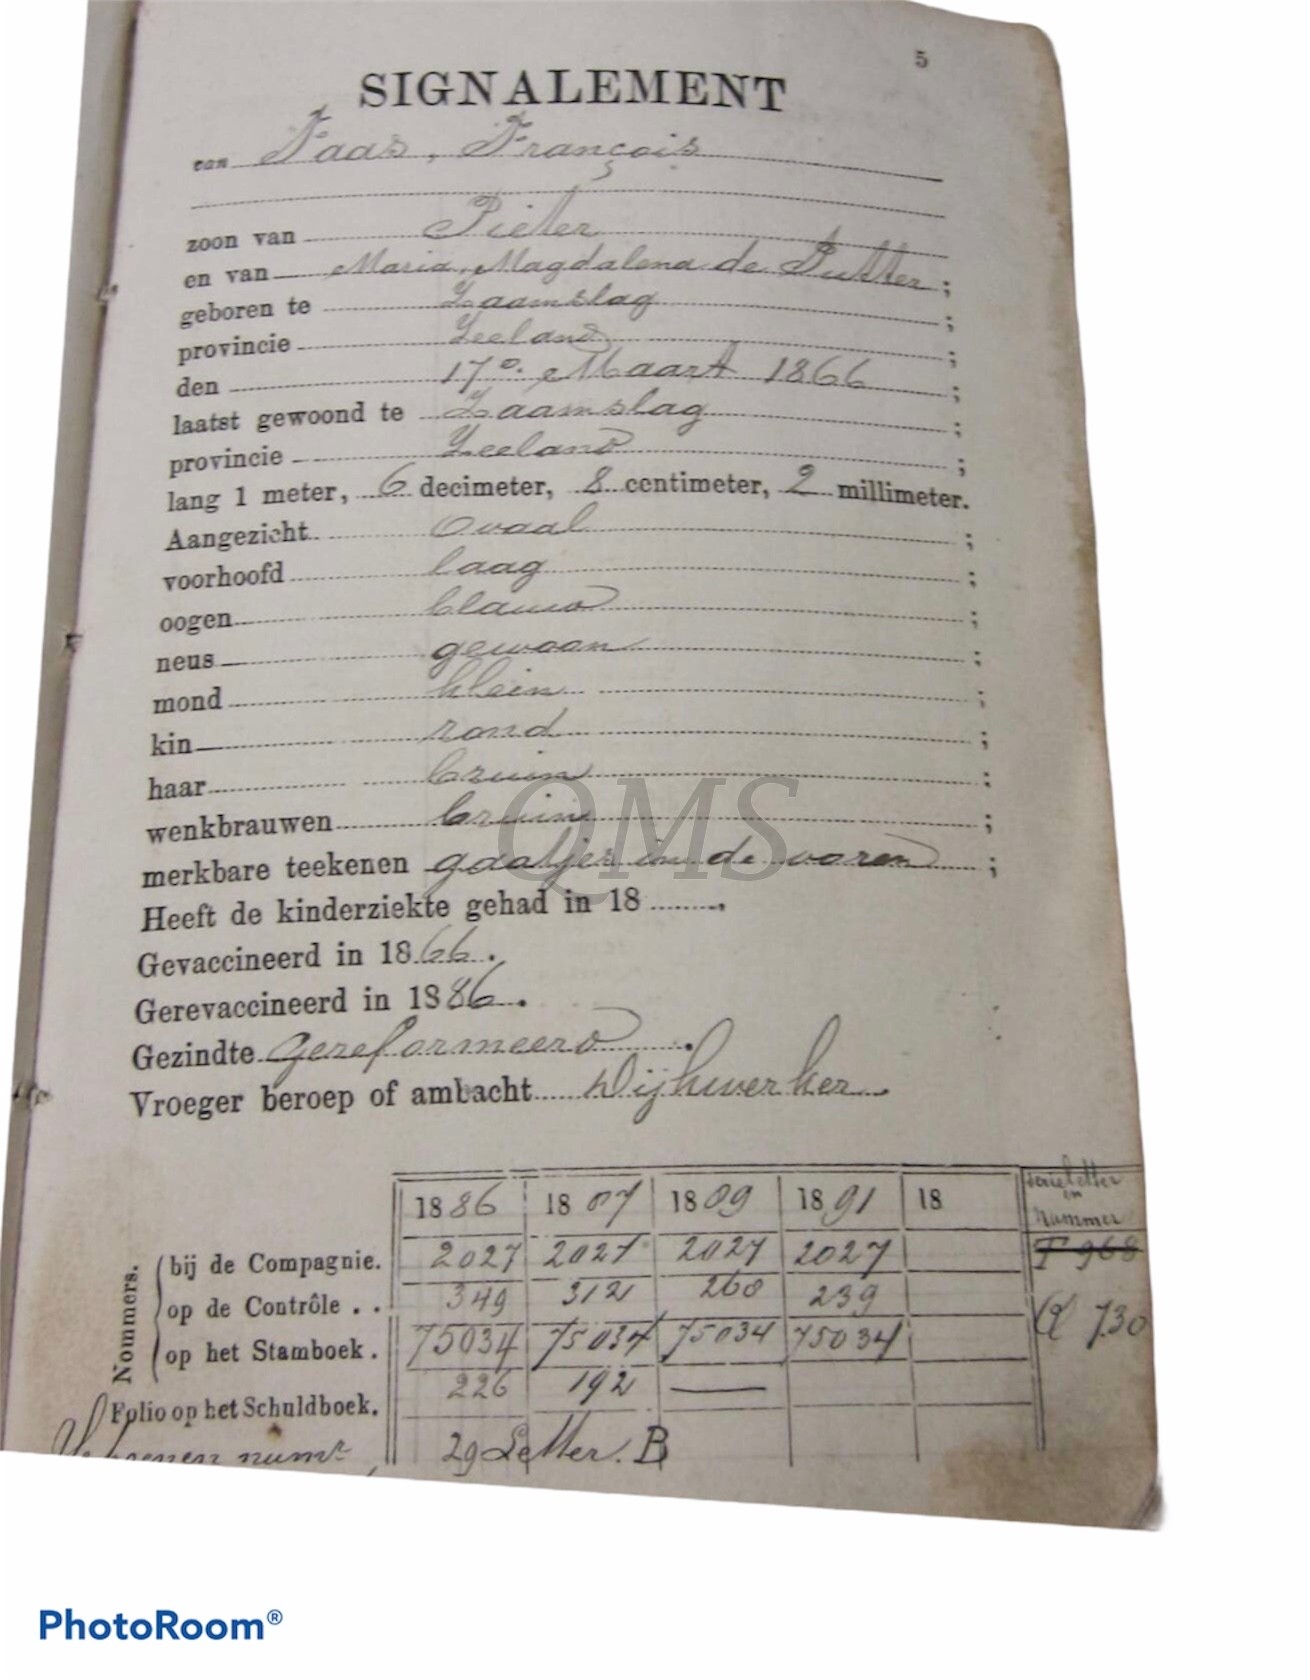 5
SIGNALEMENT
van Faas, François
zoon van Pieter
en van Maria Magdalena de Putter;
geboren te Zaamslag;
provincie Zeeland;
den 17e. Maart 1866;
laatst gewoond te Zaamslag;
provincie Zeeland;
lang 1 meter, 6 decimeter, 8 centimeter, 2 millimeter.
Aangezicht ovaal;
voorhoofd laag;
oogen blauw;
neus gewoon;
mond klein;
kin rond;
haar bruin;
wenkbrauwen bruin;
merkbare teekenen gaatjes in de ooren;
Heeft de kinderziekte gehad in 18
Gevaccineerd in 1866.
Gerevaccineerd in 1886.
Gezindte Gereformeerd.
Vroeger beroep of ambacht Dijkwerker
1886 1887 1889 1891 18 Serieletter en Nummer
Nommers.
bij de Compagnie. 2027 2027 2027 2027 F 968
op de Contrôle . . 349 312 260 239 730
op het Stamboek. 75034 75034 75034 75034
Folio op het Schuldboek. 226 192 —
numr 29 Letter. B
QMS
PhotoRoom®